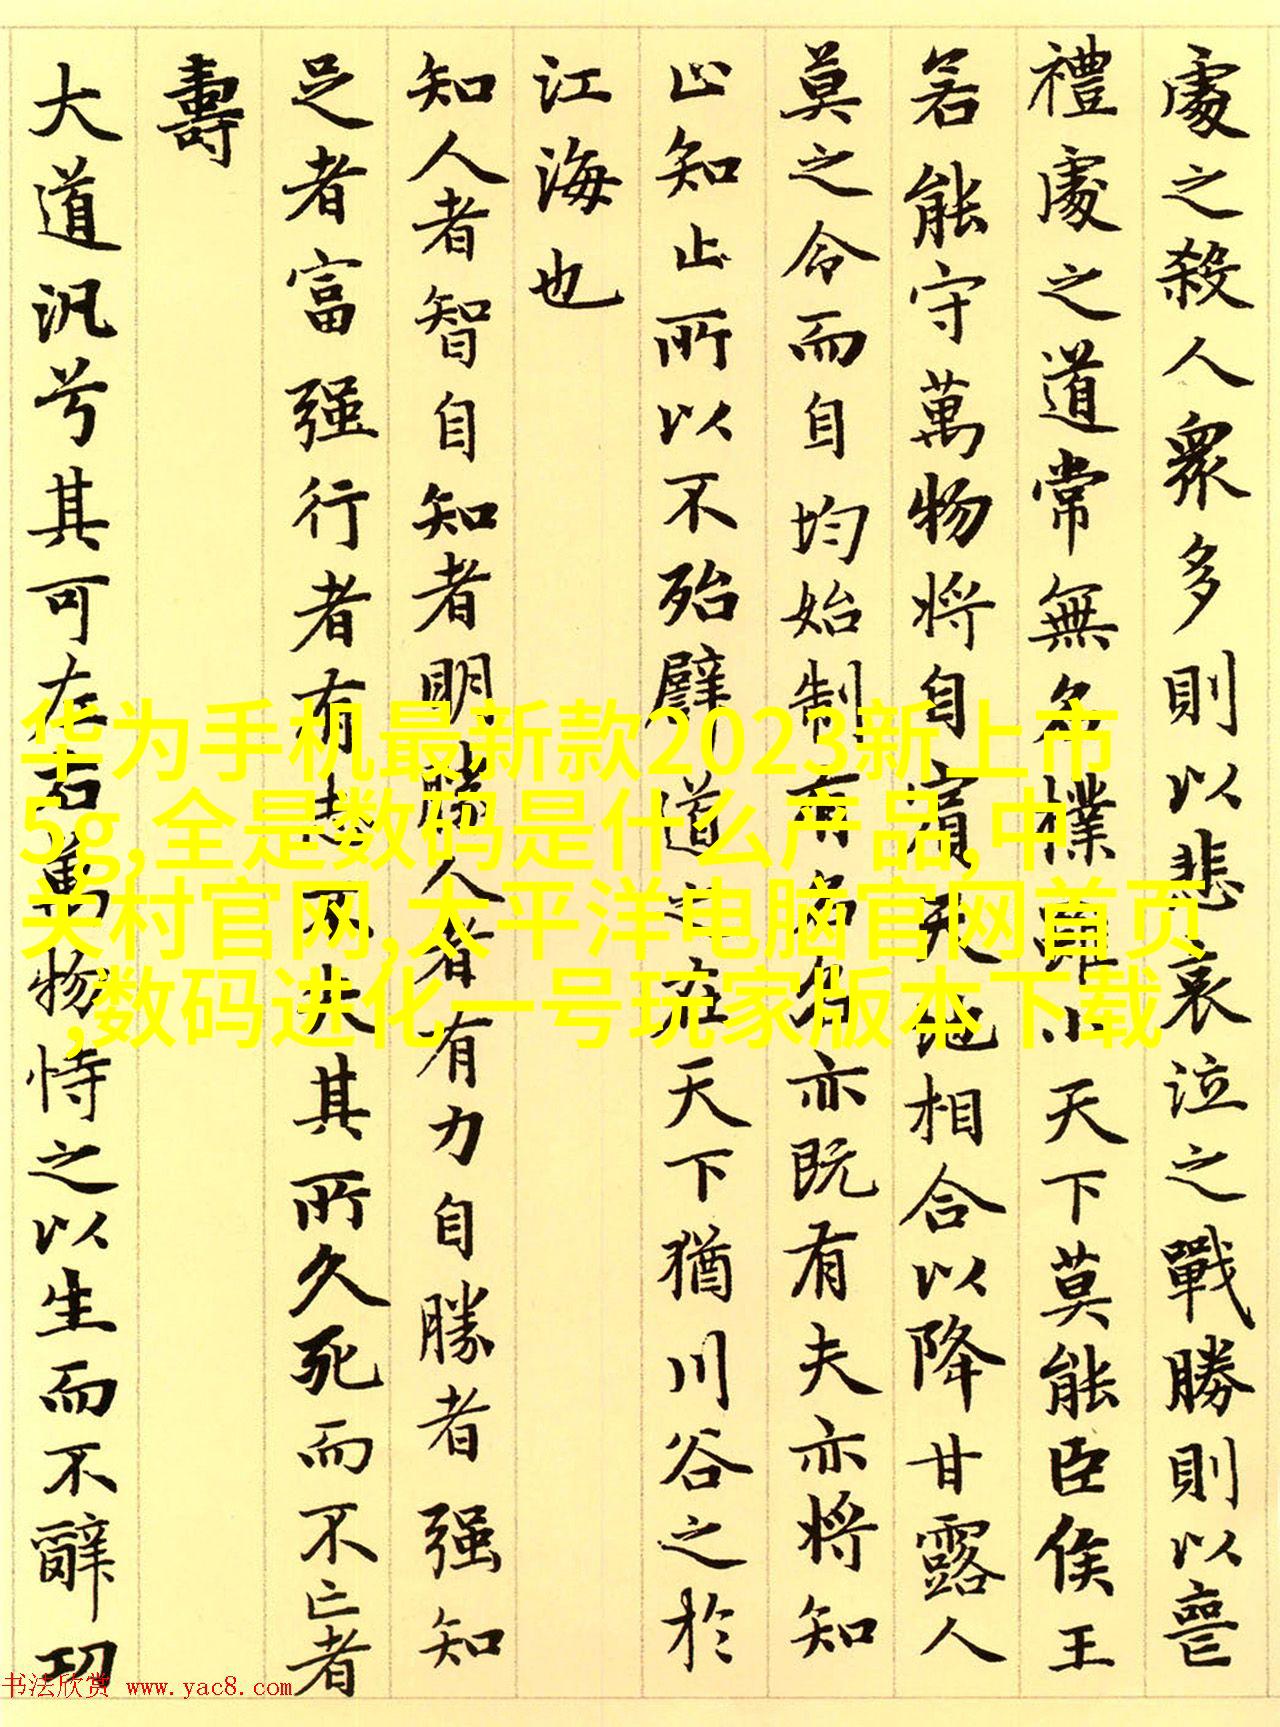 處之殺人衆多則以悲哀泣之戰勝則以喪
禮處之道常無名樸雖小天下莫能臣侯王
若能守萬物將自賓天地相合以降甘露人
莫之令而自均始制有名名亦既有夫亦將知
止知止所以不殆譬道之在天下猶川谷之於
江海也
知人者智自知者明勝人者有力自勝者强知
足者富强行者有志不失其所久死而不亡者
壽
大道汎兮其可左右萬物恃之以生而不辭功
华为手机最新款2023新上市
5g,全是数码是什么产品,中
关村官网,太平洋电脑官网首页
,数码进化一号玩家版本下载
书法欣赏 www.yac8.com